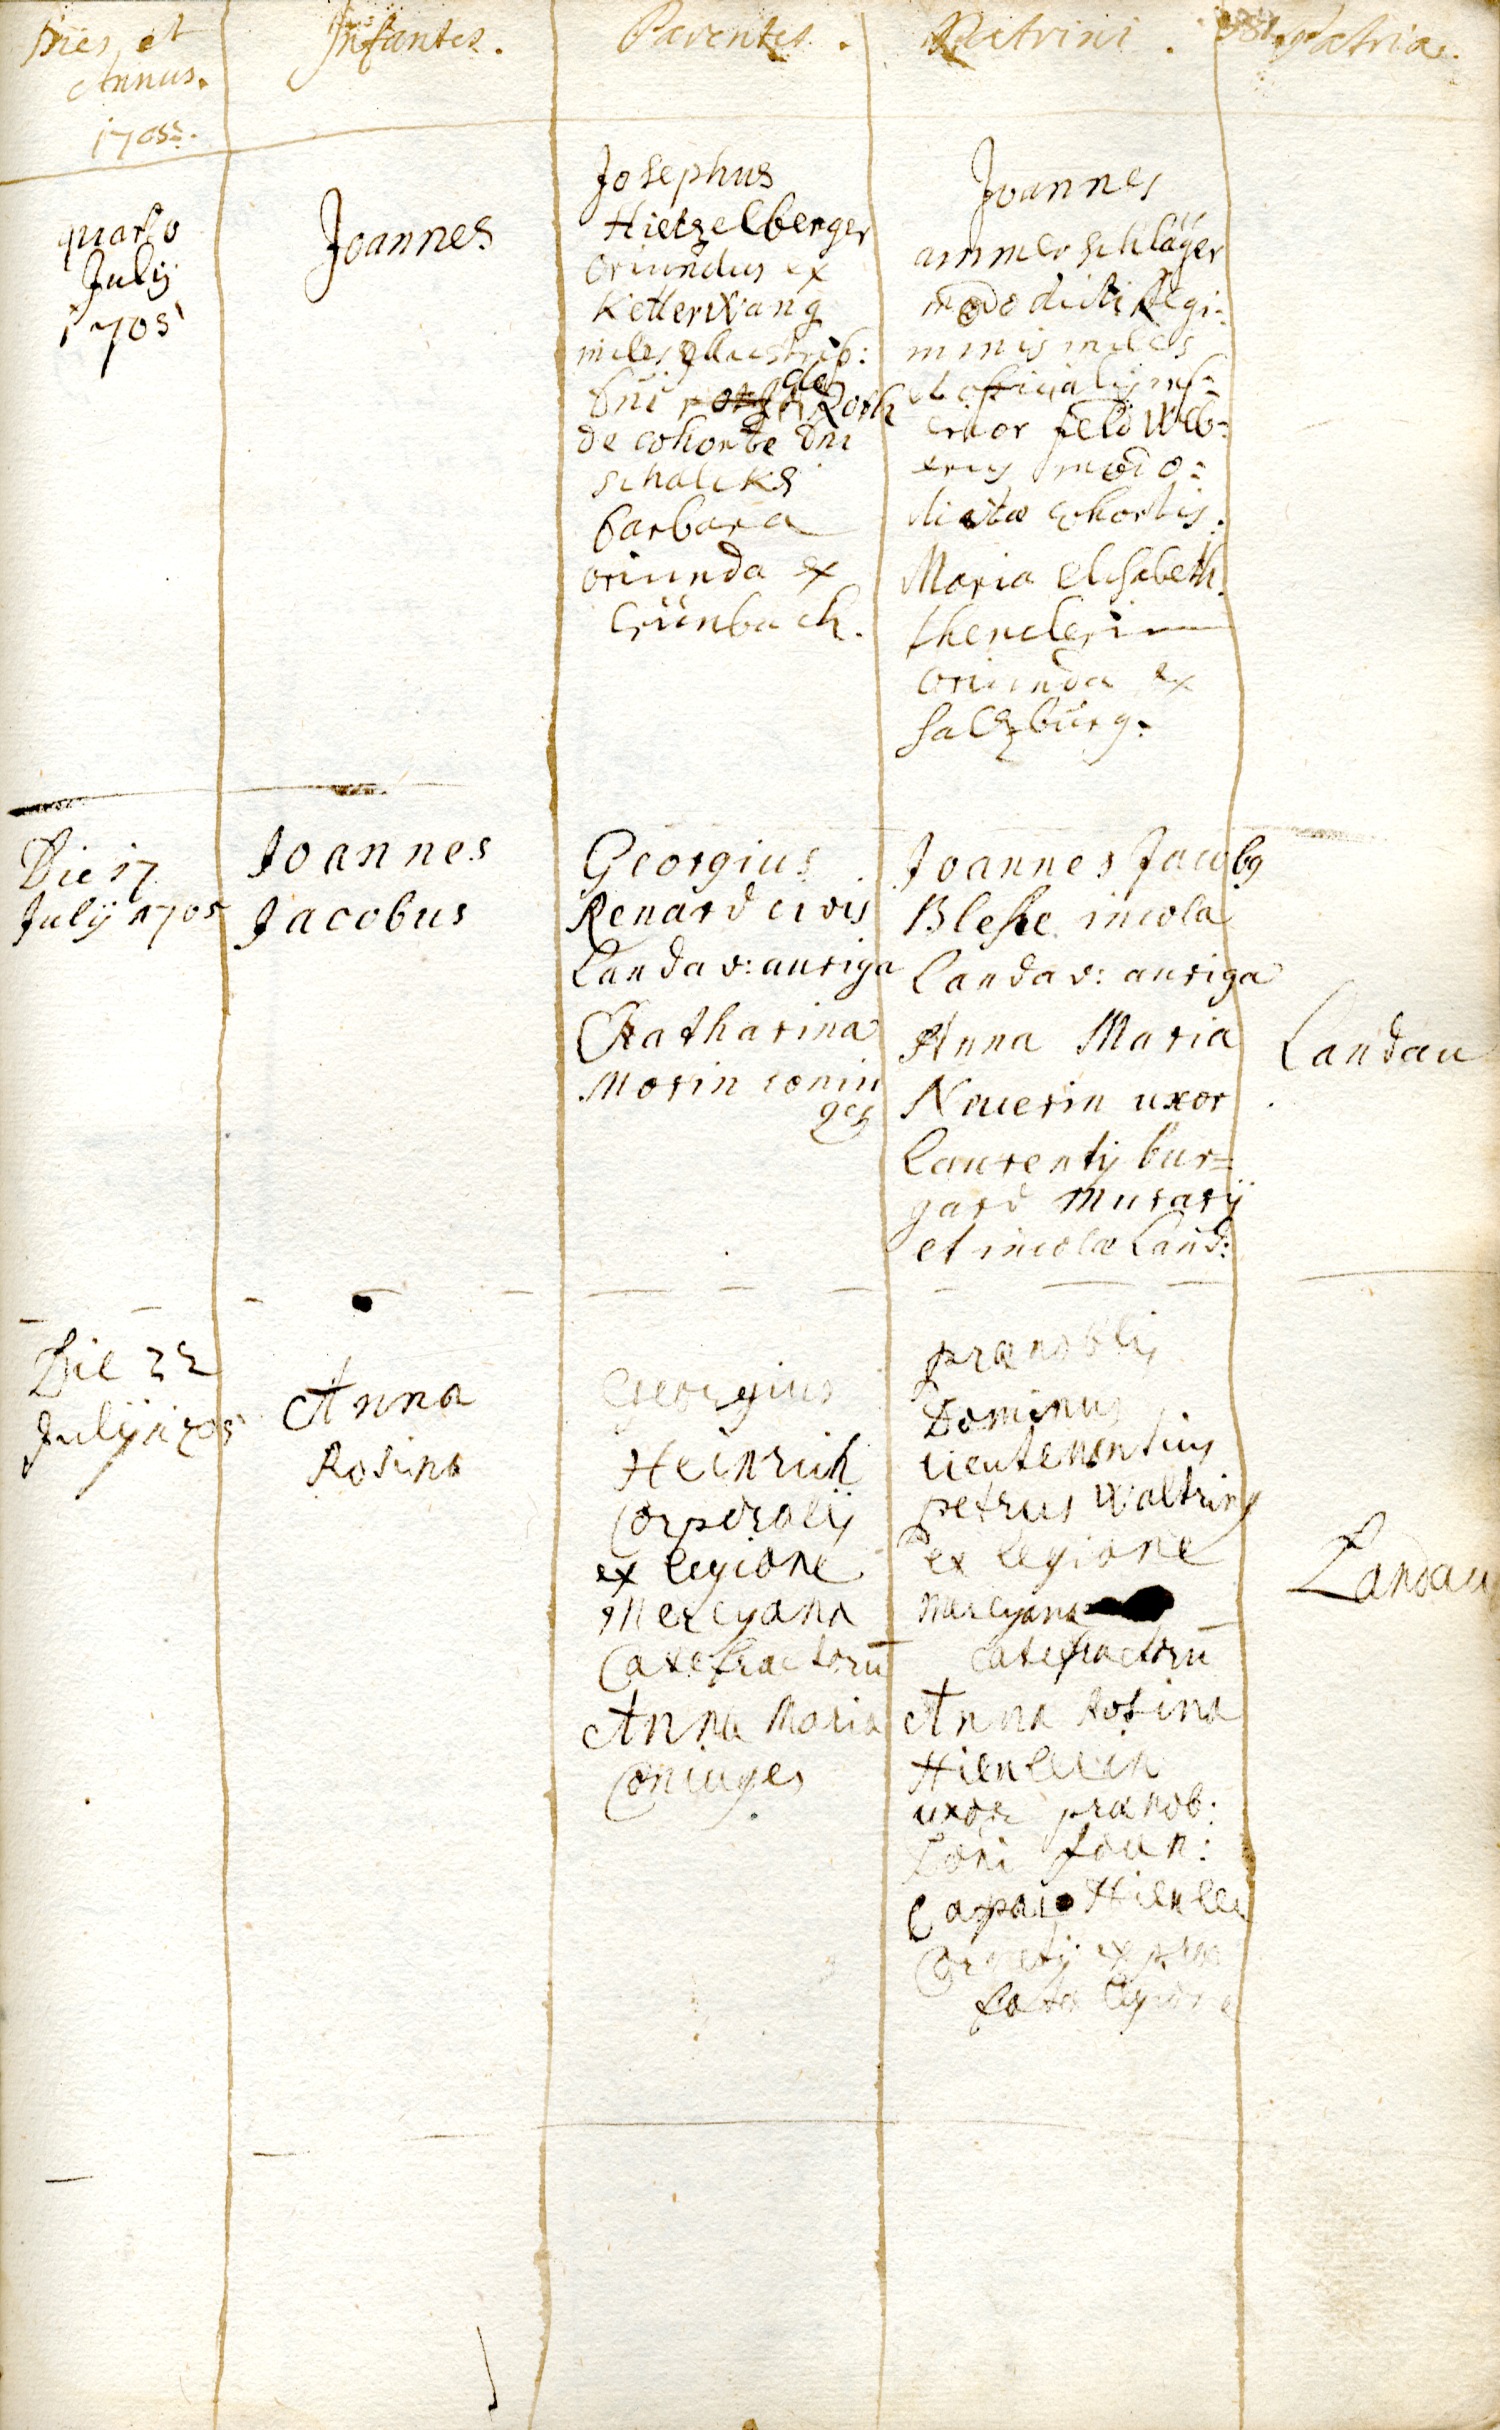 Dies et
Annus.
1705.
Infantes.
Parentes.
Patrini.
Patria.
quarto
July
1705
Joannes
Josephus
Hietzelberger
oriundus ex
Ketterwang
miles
Dni de Roth
de cohorte Dni
schalcks
barbara
oriunda ex
Crünbach.
Joannes
ammerschläger
modo dicti Regi=
minis miles
et officialis inf=
erior feldweb=
erus modo=
dictæ cohortis.
Maria Elisabeth
oriunda ex
saltzburg.
Die 17
July 1705
Joannes
Jacobus
Georgius
Renard civis
Landav: auriga
Catharina
Morin coniu
ges
Joannes Jacobus
incola
Landav: auriga
Anna Maria
uxor
Laurentij bur=
gard Murarij
et incolæ Land:
Landau
Die 22
July 1705
Anna
Rosina
Georgius
Heinrich
Corporalis
ex legione
Mercyana
Catefractorū
Anna Maria
Coniuges
prænobilis
Dominus
lieutenantius
petrus Waltring
ex legione
Mercyana
catefractorū
Anna Rosina
Hienlein
uxor prænob:
Doni Joan:
Caspar Hienlei
Corneti ex præ
fata legione
Landau